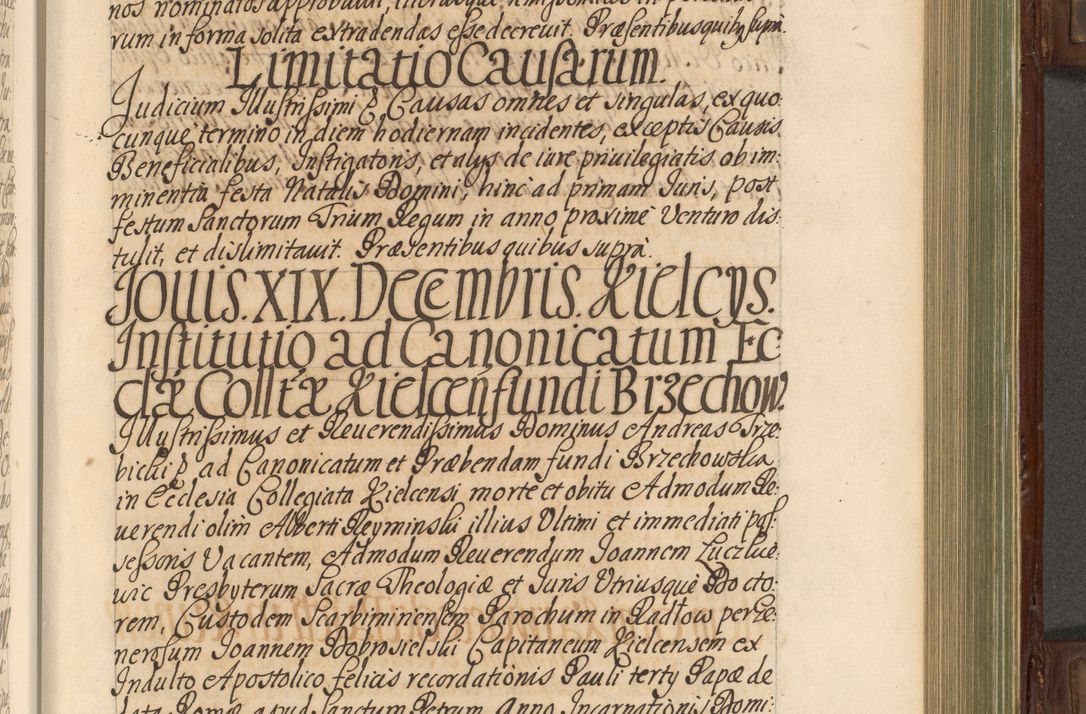 nos nominatos approbavit, literasque
rum in forma solita extradendas esse decreuit. Præsentibus quibus supra.
Limitatio Causarum.
Judicium Illustrissimi &c. Causas omnes et singulas, ex quo:
cunque termino in diem hodiernam incidentes, exceptis Causis
Beneficialibus, Instigatoris, et alys de iure priuilegiatis, ob im:
minentia festa Natalis Domini, hinc ad primam Juris, post
festum Sanctorum Trium Regum in anno proxime Venturo dis:
tulit, et dislimitauit. Præsentibus quibus supra.
Jouis. XIX. Decembris. Kielcys.
Institutio ad Canonicatum Ec
clæ Colltæ Kielcen. fundi Brzechow.
Illustrissimus et Reuerendissimus Dominus Andreas Trze:
bicki &c. ad Canonicatum et Præbendam fundi Brzechowska
in Ecclesia Collegiata Kielcensi, morte et obitu Admodum Re:
uerendi olim Alberti Reyminski illius Ultimi et immediati pos:
sessoris Vacantem, Admodum Reuerendum Joannem Luczkie:
wic Presbyterum Sacræ Theologiæ et Juris Utriusque Docto:
rem, Custodem Scarbimiriensem Parochum in Radłow per Ge:
nerosum Joannem Dobrosielski Capitaneum Kielcensem ex
Indulto Apostolico felicis recordationis Pauli terty Papæ de
data Romæ apud Sanctum Petrum Anno Incarnationis Domi: